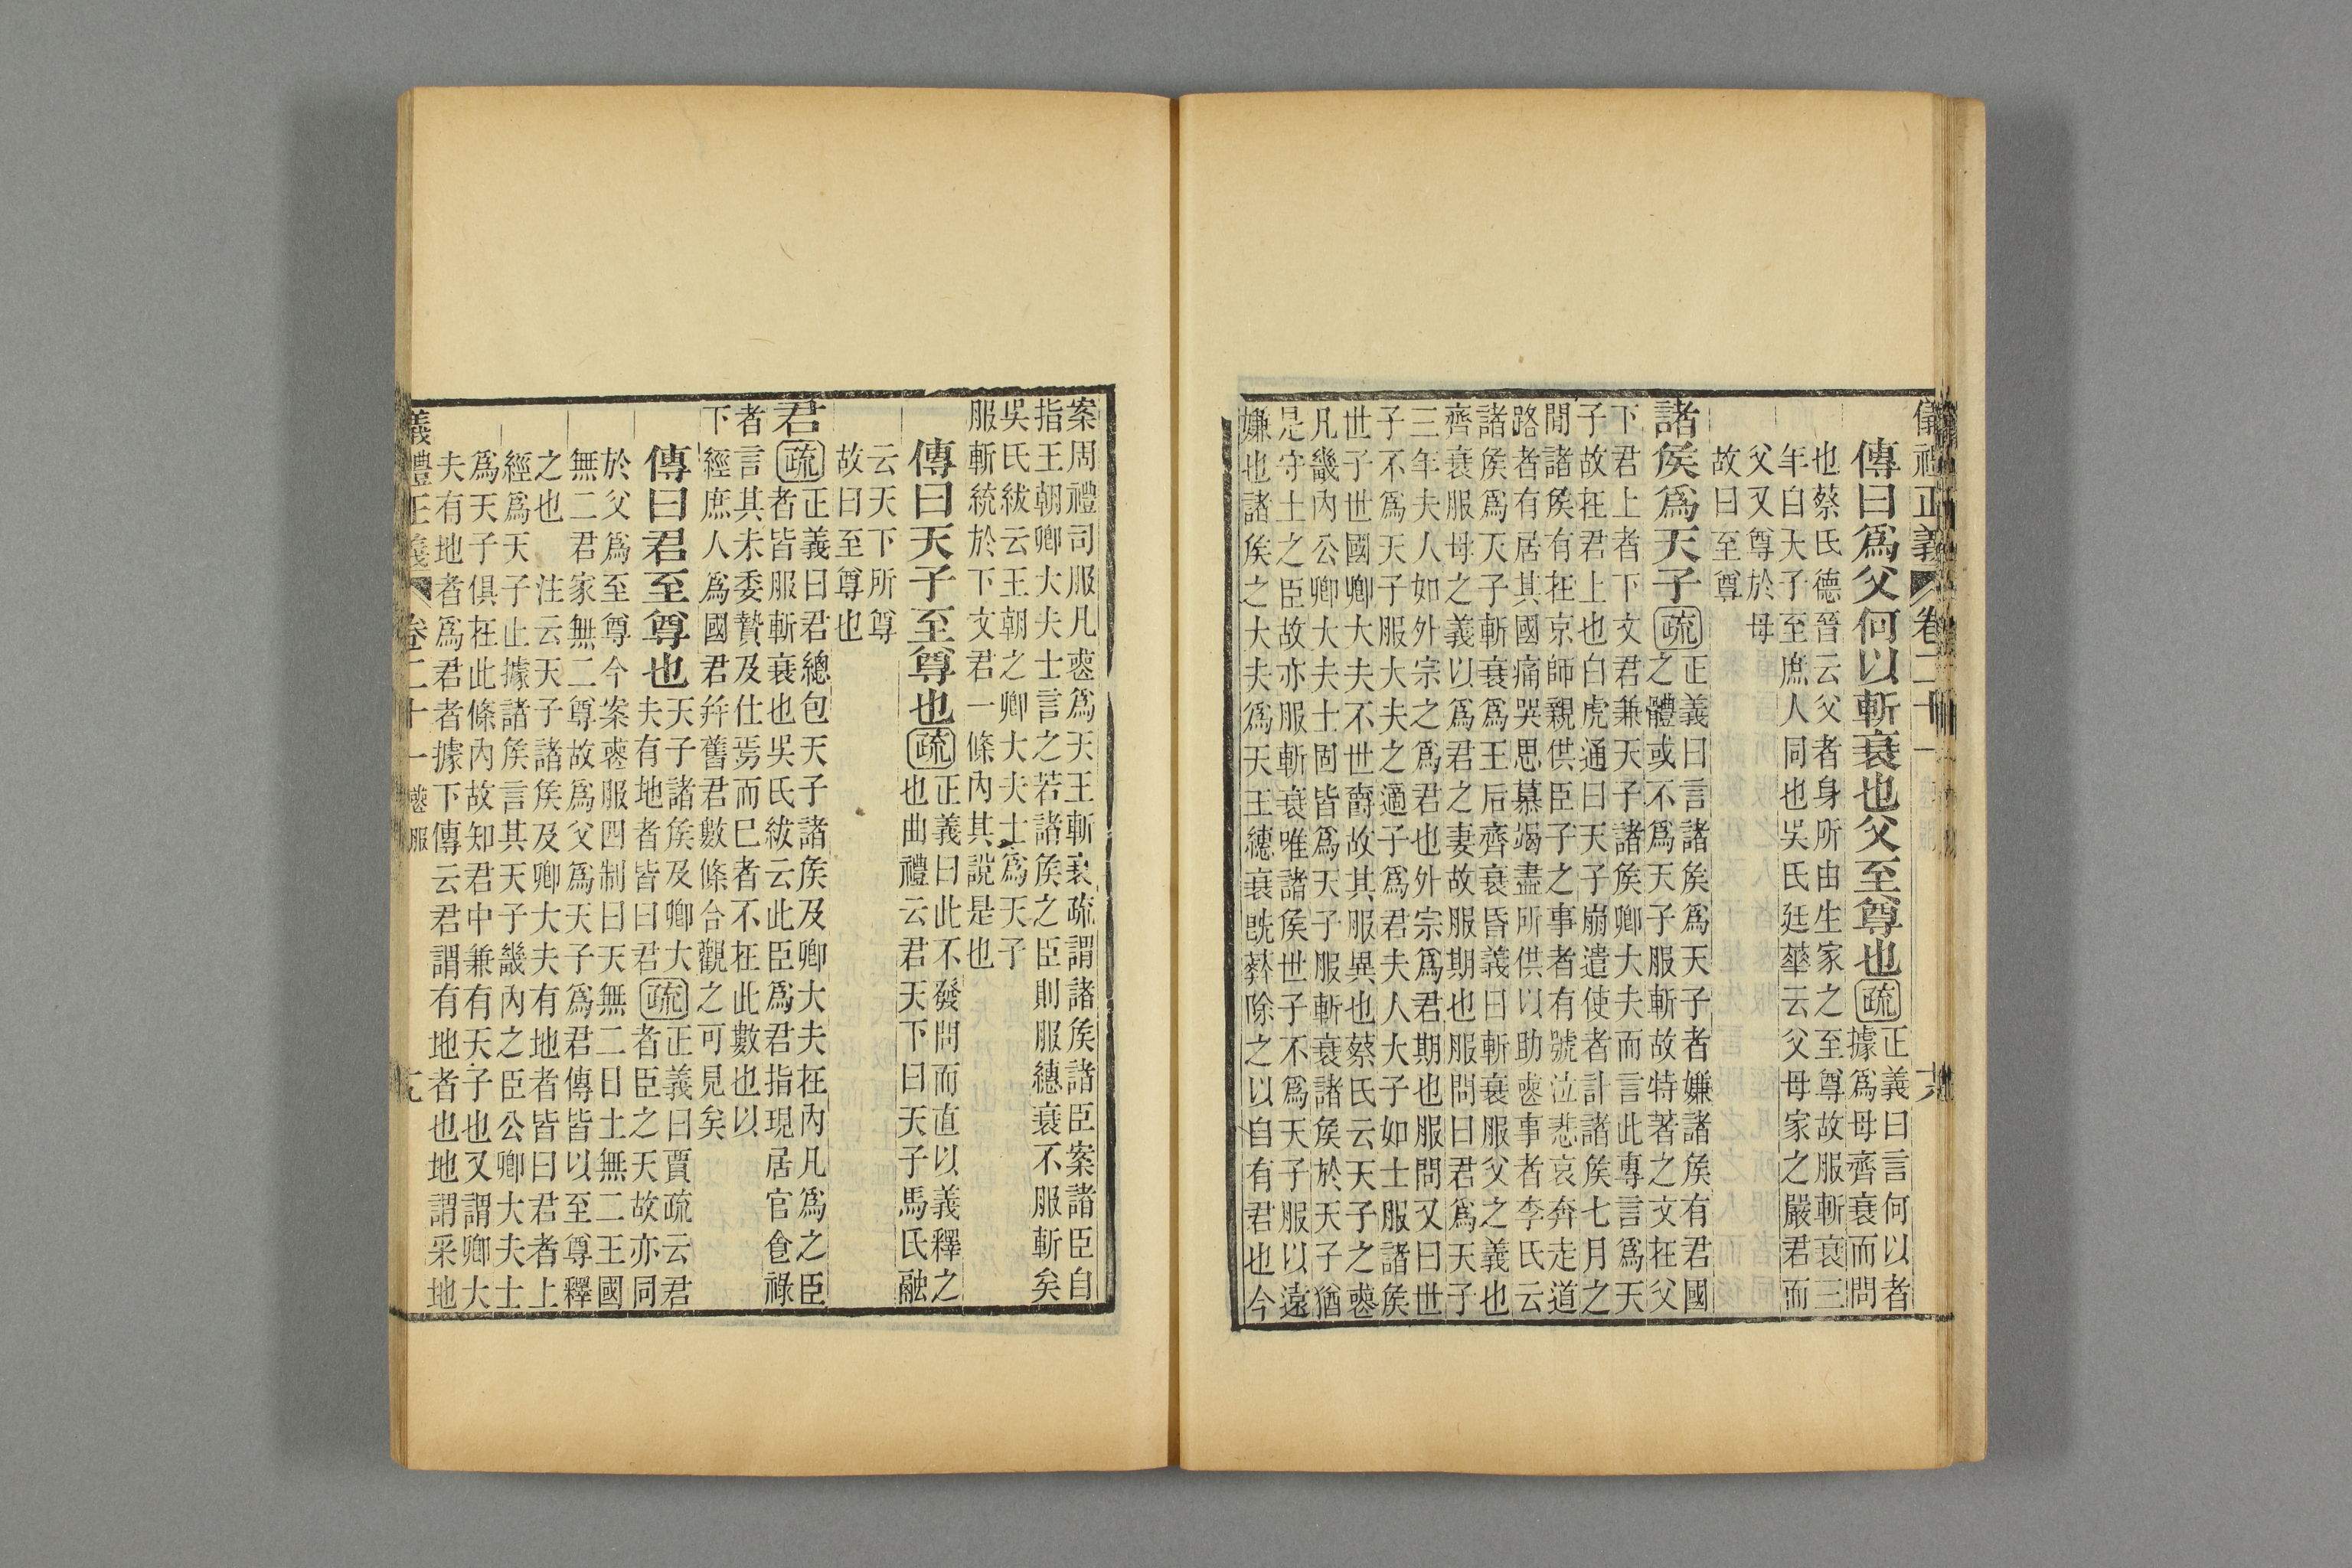 儀禮正義 卷二十一
傳曰爲父何以斬衰也父至尊也疏正義曰言何以者
據爲母齊衰而問
也蔡氏德晉云父者身所由生家之至尊故服斬衰三
年自天子至庶人同也吳氏廷華云父母家之嚴君而
父又尊於母
故曰至尊
諸矦爲天子疏正義曰言諸矦爲天子者嫌諸矦有君國
之體或不爲天子服斬故特著之文在父
下君上者下文君兼天子諸矦卿大夫而言此專言爲天
子故在君上也白虎通曰天子崩遣使者計諸矦七月之
閒諸矦有在京師親供臣子之事者有號泣悲哀奔走道
路者有居其國痛哭思慕竭盡所供以助喪事者李氏云
諸矦爲天子斬衰爲王后齊衰昏義曰斬衰服父之義也
齊衰服母之義以爲君之妻故服期也服問曰君爲天子
三年夫人如外宗之爲君也外宗爲君期也服問又曰世
子不爲天子服大夫之適子爲君夫人大子如士服諸矦
世子世國卿大夫不世爵故其服異也蔡氏云天子之喪
凡畿內公卿大夫士固皆爲天子服斬衰諸矦於天子猶
是守土之臣故亦服斬衰唯諸矦世子不爲天子服以遠
嫌也諸矦之大夫爲天王繐衰旣葬除之以自有君也今
案周禮司服凡喪爲天王斬衰疏謂諸矦諸臣案諸臣自
指王朝卿大夫士言之若諸矦之臣則服繐衰不服斬矣
吳氏紱云王朝之卿大夫士爲天子
服斬統於下文君一條內其說是也
傳曰天子至尊也疏正義曰此不發問而直以義釋之
也曲禮云君天下曰天子馬氏融
云天下所尊
故曰至尊也
君疏正義曰君總包天子諸矦及卿大夫在內凡爲之臣
者皆服斬衰也吳氏紱云此臣爲君指現居官食祿
者言其未委贄及仕焉而已者不在此數也以
下經庶人爲國君幷舊君數條合觀之可見矣
傳曰君至尊也天子諸矦及卿大
夫有地者皆曰君疏正義曰賈疏云君
者臣之天故亦同
於父爲至尊今案喪服四制曰天無二日土無二王國
無二君家無二尊故爲父爲天子爲君傳皆以至尊釋
之也　注云天子諸矦及卿大夫有地者皆曰君者上
經爲天子止據諸矦言其天子畿內之臣公卿大夫士
爲天子俱在此條內故知君中兼有天子也又謂卿大
夫有地者爲君者據下傳云君謂有地者也地謂采地
儀禮正義 卷二十一 喪服